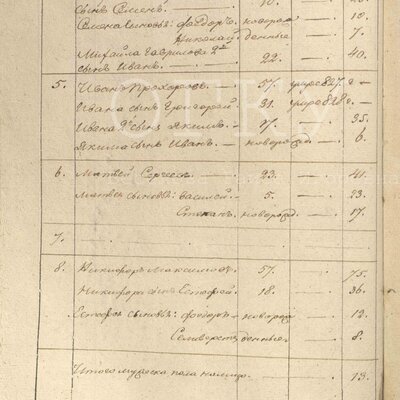 сынъ Семенъ. 10. — 28.
Семена сыновья: Федоръ новорож 10.
Николай денные 7.
Михайла Гаврилова 2й
сынъ Иванъ. 22. — 40.
5. Иванъ Прохоровъ. 57. умре 827 г. —
Ивана сынъ Григорей 31. умре 828 г. —
Ивана 2й сынъ Якимъ. 17. — 35.
Якима сынъ Иванъ. — новорож. — 6.
6. Матвей Сергеевъ 23. — 41.
Матвея сыновья: Василей 5. — 23.
Степанъ. новорожд. — 17.
7.
8. Никифоръ Максимовъ. 57. — 75.
Никифора сынъ Естафей. 18. — 36.
Естафея сыновья: Федоръ — новорож 12.
Селиверстъ денные. — 8.
Итого мужеска пола налицо 13.